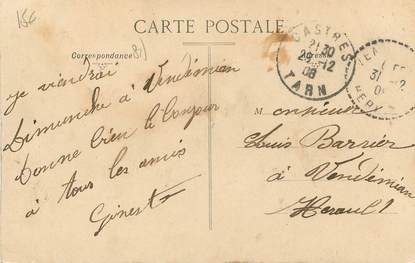 15€
CARTE POSTALE
Correspondance
je viendrai
Dimanche à Vendémian
donne bien le bonjour
à tous les amis
Ginest
CASTRES
21 30
29 -12
08
TARN
31
Monsieur
Louis Barrier
à Vendémian
Herault